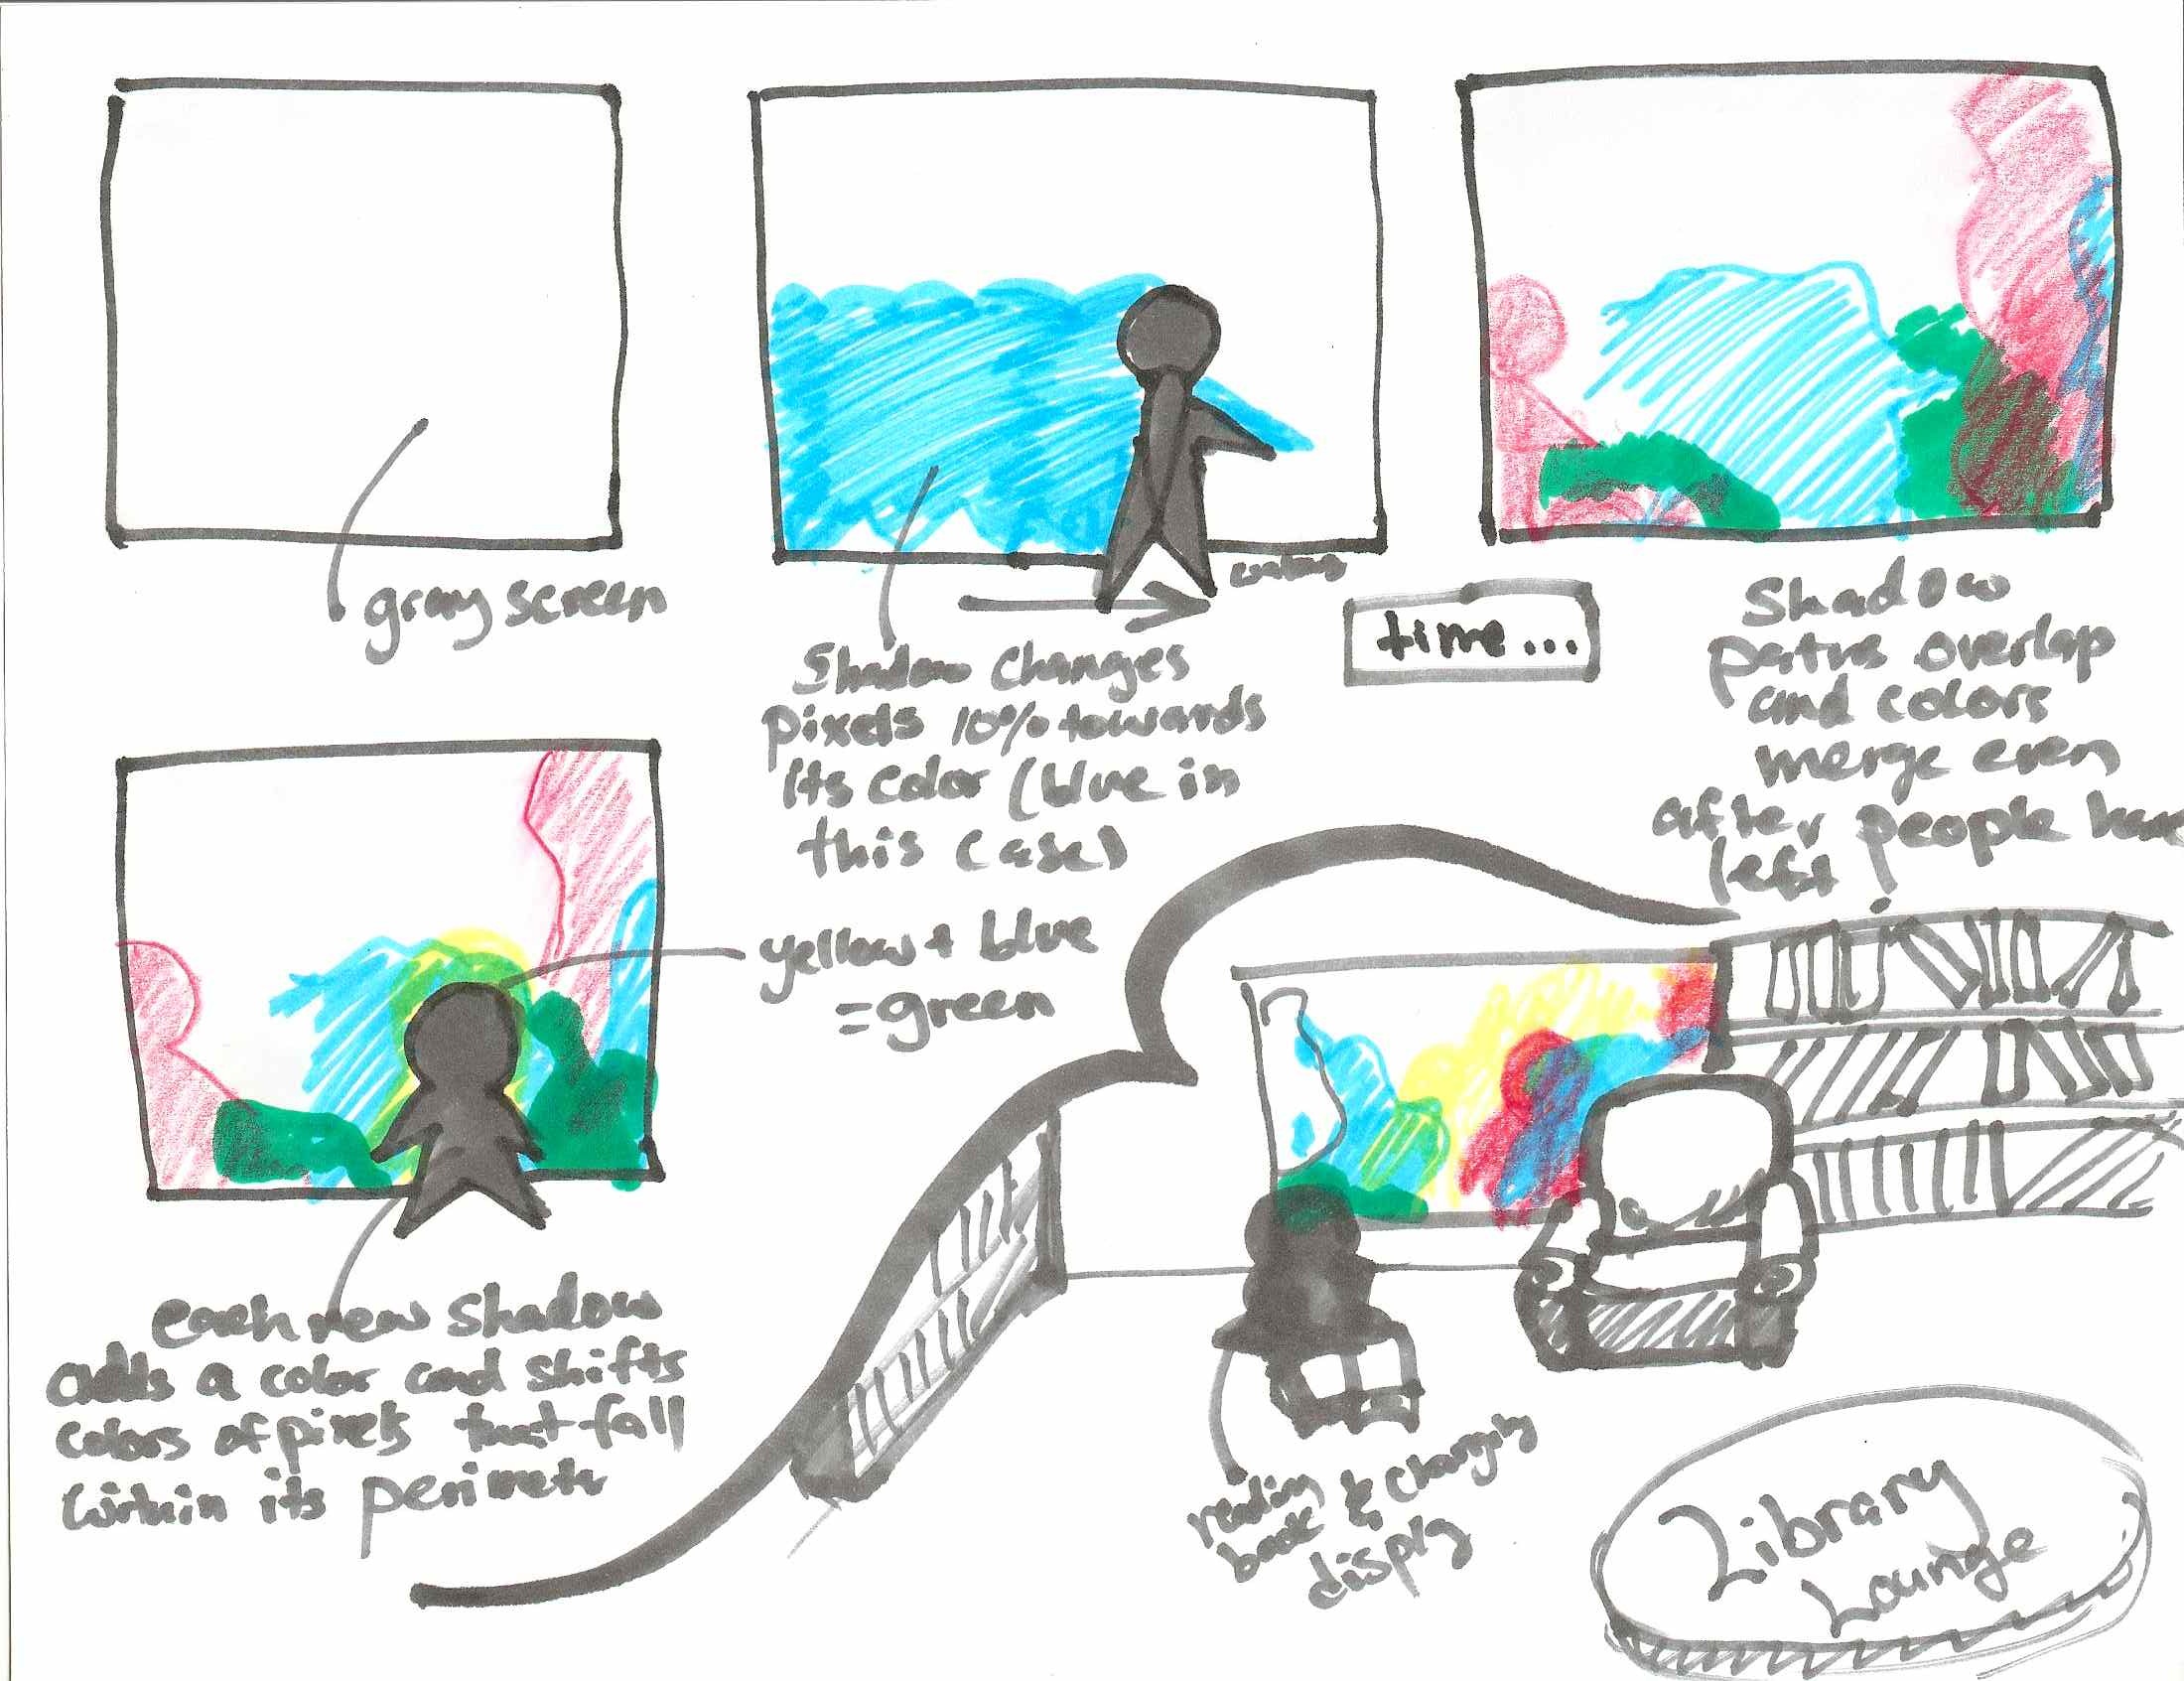 gray screen
Shadow Changes
pixels 10% towards
its color (blue in
this case)
time...
Shadow
paths overlap
and colors
merge even
after people have
left
yellow + blue
= green
each new shadow
adds a color and shifts
colors of pixels that fall
within its perimeter
reading
book & changing
display
Library
Lounge